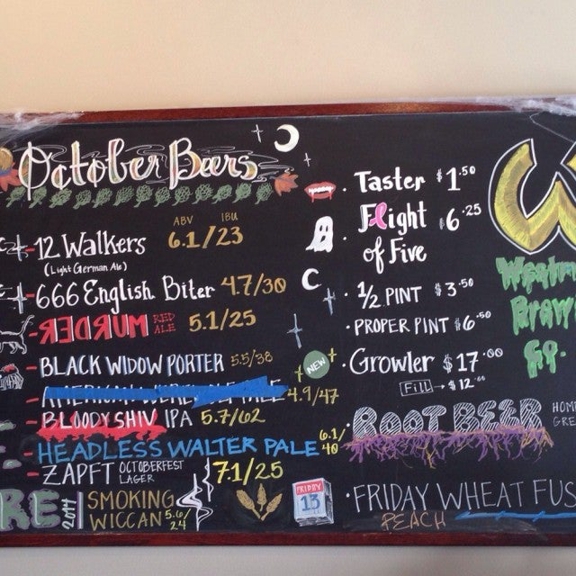 October Beers
ABV IBU
12 Walkers 6.1/23
(Light German Ale)
666 English Biter 4.7/30
REDRUM RED ALE 5.1/25
BLACK WIDOW PORTER 5.5/38
4.9/47
BLOODY SHIV IPA 5.7/62
HEADLESS WALTER PALE 6.1/40
ZAPFT OCTOBERFEST LAGER 7.1/25
RE 2011 SMOKING WICCAN 5.6/24
Taster $1.50
Flight $6.25
of Five
1/2 PINT $3.50
PROPER PINT $6.50
NEW
Growler $17.00
Fill → $12.00
ROOT BEER HOM
GRE
FRIDAY 13
FRIDAY WHEAT FUS
PEACH
W
Co.